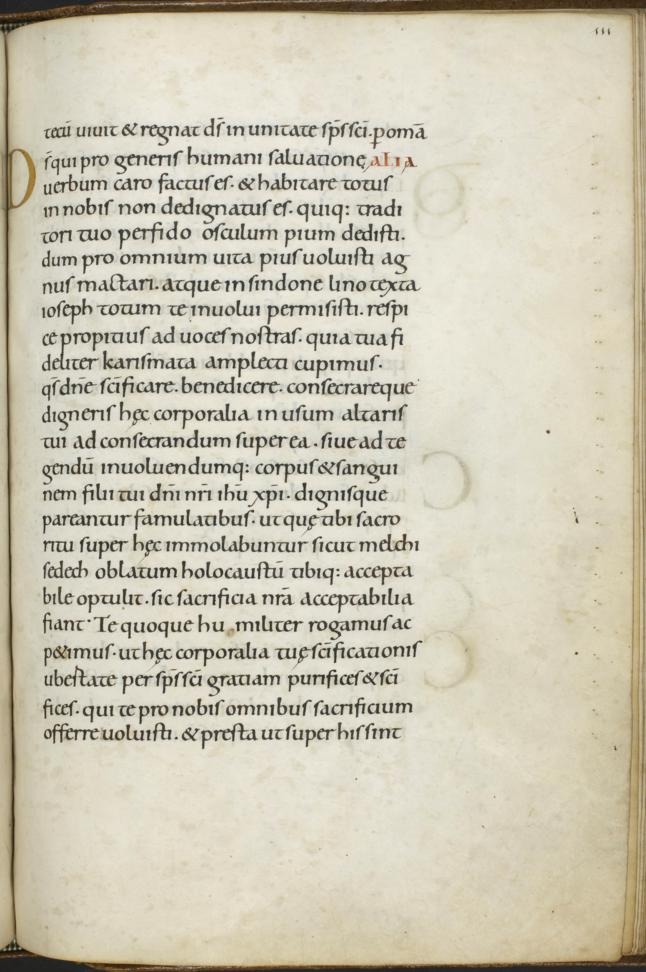 111
tecū uiuit & regnat ds̄ in unitate sp̄s sc̄i. p omā
D s̄ qui pro generis humani saluatione ALIA
uerbum caro factus es. & habitare totus
in nobis non dedignatus es. quiq: tradi
tori tuo perfido osculum pium dedisti.
dum pro omnium uita pius uoluisti ag
nus mactari. atque in sindone lino texta
ioseph totum te inuolui permisisti. respi
ce propitius ad uoces nostras. quia tua fi
deliter karismata amplecti cupimus.
qs̄ dn̄e sc̄ificare. benedicere. consecrareque
digneris hęc corporalia in usum altaris
tui ad consecrandum super ea. siue ad te
gendū inuoluendumq: corpus & sangui
nem filii tui dn̄i nr̄i ih̄u xp̄i. dignisque
pareantur famulatibus. ut quę tibi sacro
ritu super hęc immolabuntur sicut melchi
sedech oblatum holocaustū tibiq: accepta
bile optulit. sic sacrificia nr̄a acceptabilia
fiant. Te quoque hu militer rogamus ac
p&imus. ut hęc corporalia tuę sc̄ificationis
ubertate per sp̄s sc̄i gratiam purifices & sc̄i
fices. qui te pro nobis omnibus sacrificium
offerre uoluisti. & presta ut super his sint